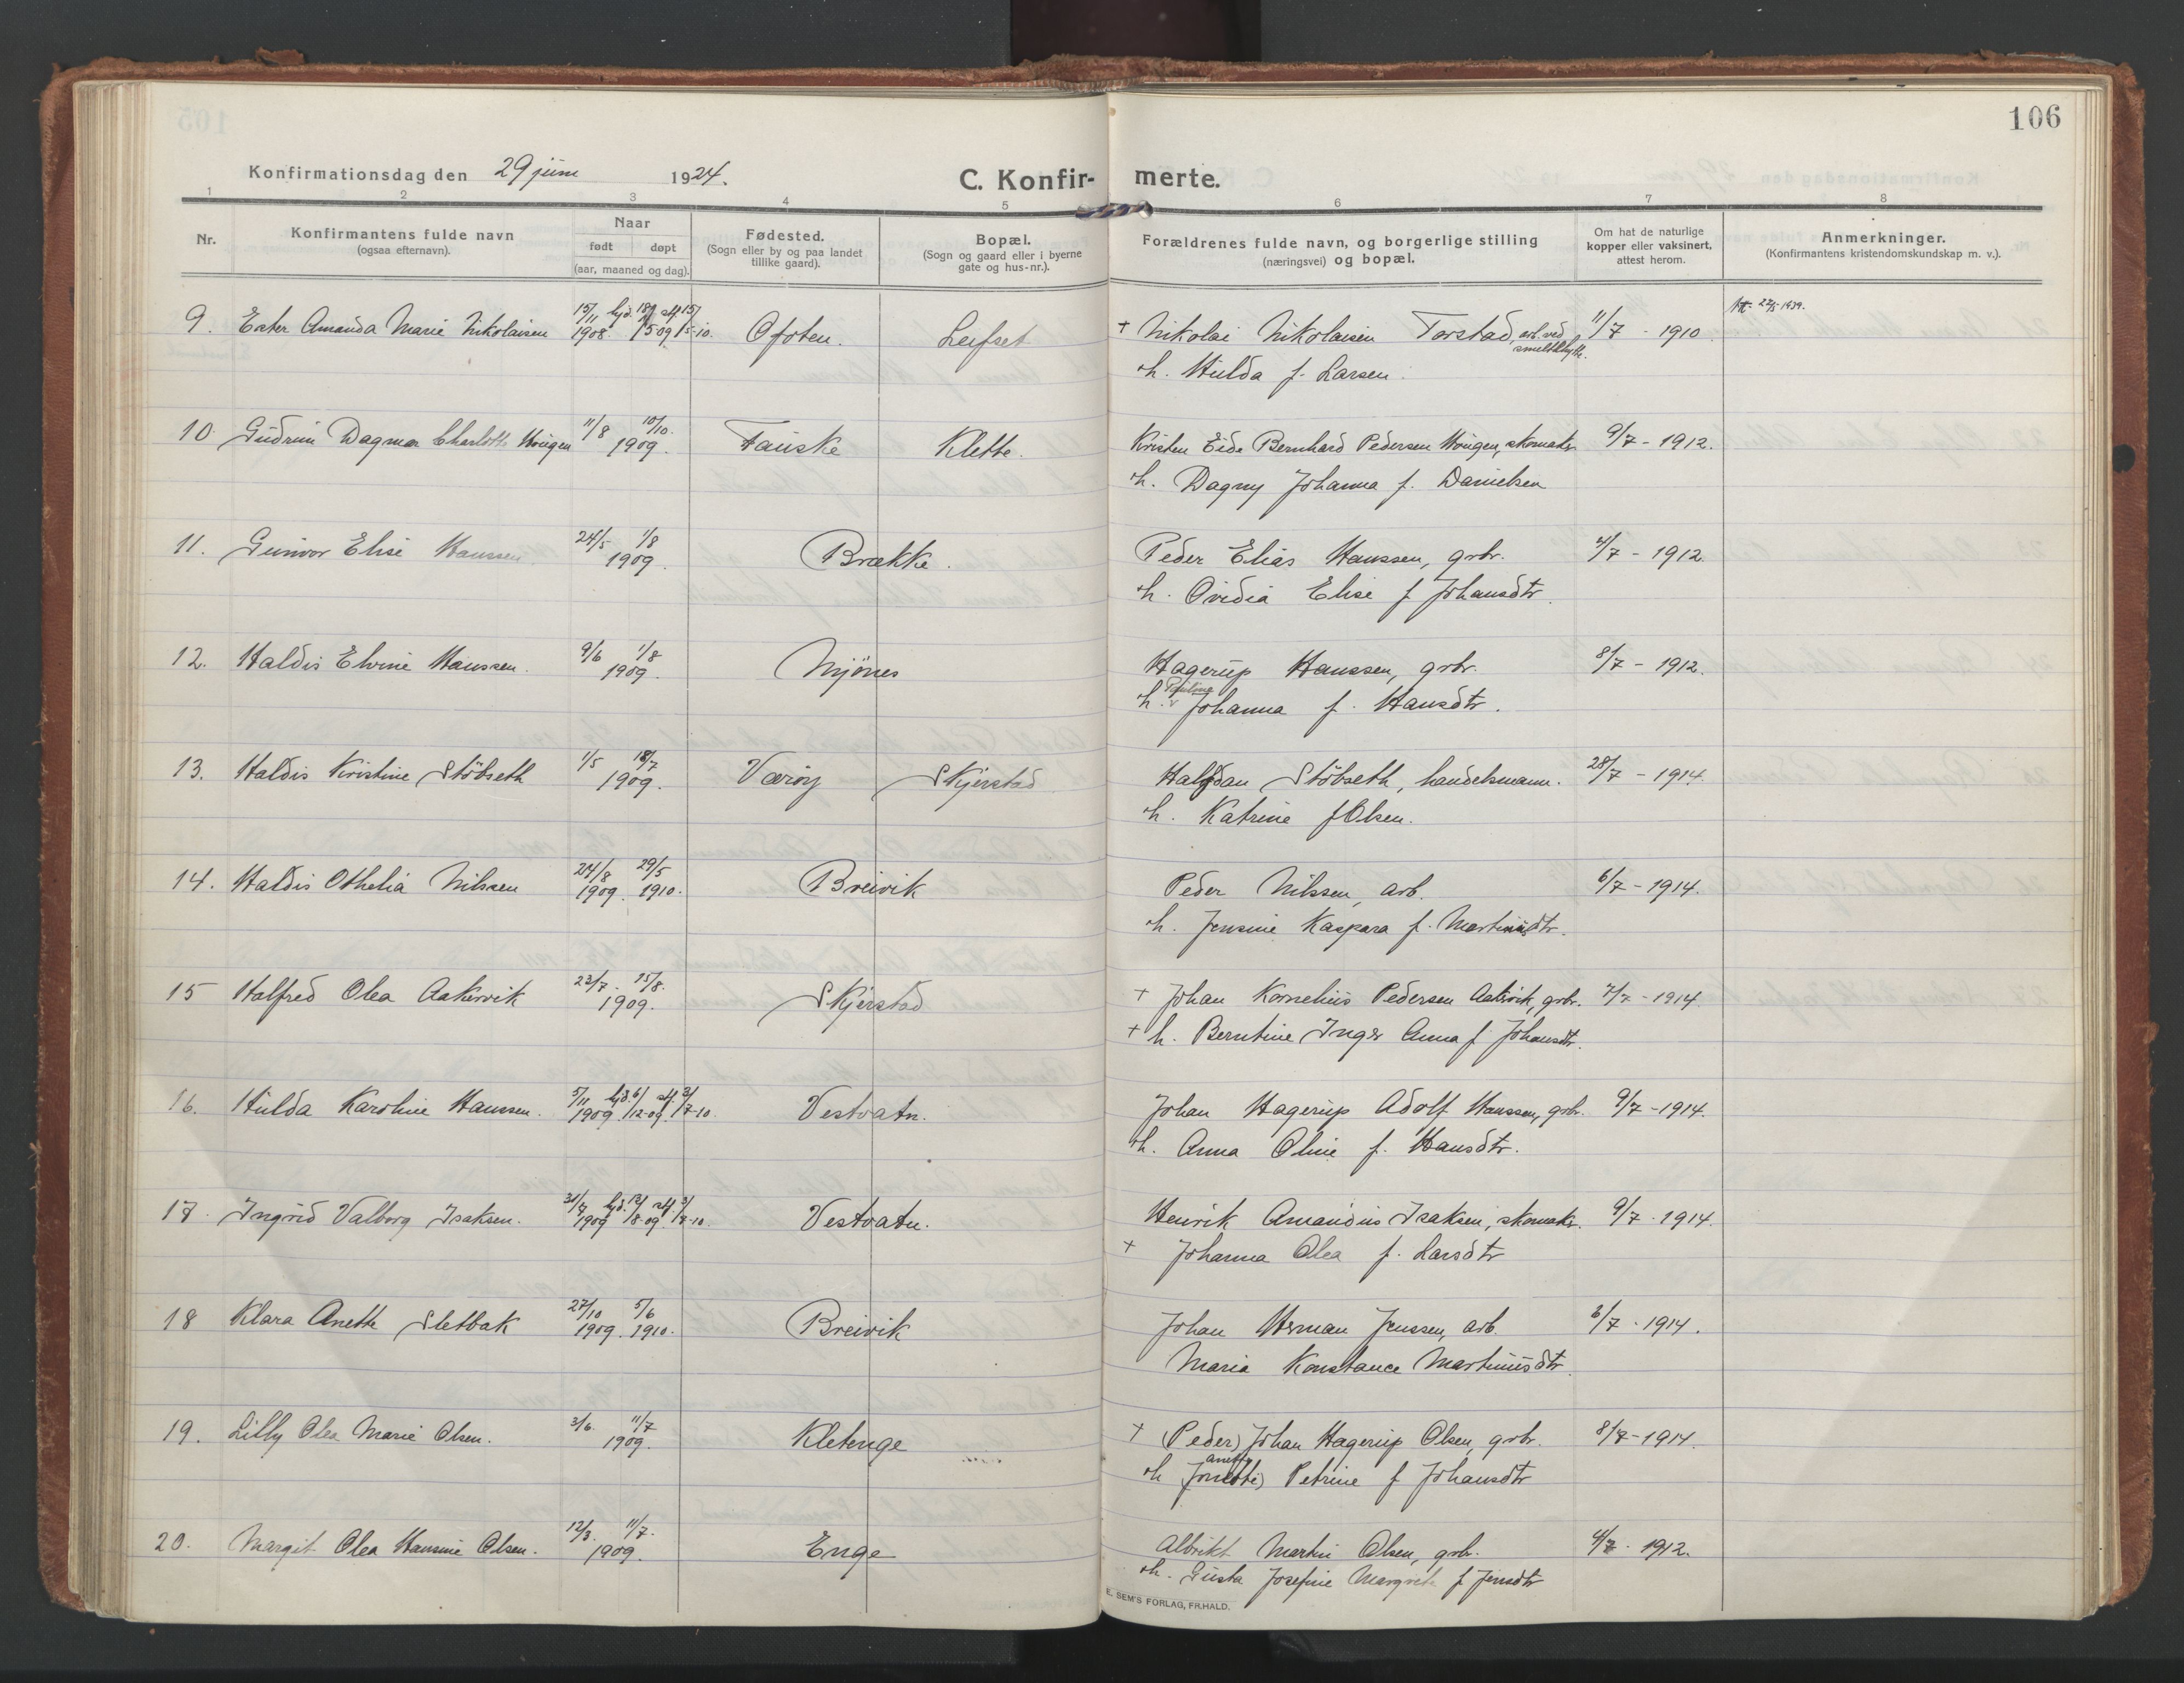 106
Konfirmationsdag den 29 juni 1924.
C. Konfir- merte.
1 2 3 4 5 6 7 8
Nr.
Konfirmantens fulde navn
(ogsaa efternavn).
Naar
født døpt
(aar, maaned og dag).
Fødested.
(Sogn eller by og paa landet
tillike gaard).
Bopæl.
(Sogn og gaard eller i byerne
gate og hus-nr.).
Forældrenes fulde navn, og borgerlige stilling
(næringsvei) og bopæl.
Om hat de naturlige
kopper eller vaksinert,
attest herom.
Anmerkninger.
(Konfirmantens kristendomskundskap m. v.).
15/11 hjd. 18/ stf. 15/
9. Ester Amanda Marie Nikolaisen 1908. /5 09 /5-10. Ofoten. Leifset + Nikolai Nikolaisen Torstad, arb. ved 11/7 - 1910
smeltehytt.
h. Hulda f. Larsen.
10. Gudrun Dagmar Charlotte Haugen 11/8 10/10. 1909. Fauske Klette. Kristen Eide Bernhard Pedersen Haugen, skomaker 9/7 - 1912.
h. Dagny Johanna f. Danielsen
11. Gunvor Elise Hanssen 24/5 1/8 1909. Brække. Peder Elias Hanssen, grbr. 4/7 - 1912.
h. Ovidia Elise f Johansdtr.
12. Haldis Elvine Hanssen. 9/6 1/8 1909. Mjönes Hagerup Hanssen, grbr. 8/7 - 1912.
Pauline
h. Johanna f. Hansdtr.
13. Haldis Kristine Stöbseth 1/5 18/7 1909. Væröy Skjerstad Halfdan Stöbseth, handelsmann. 28/7 - 1914.
h. Katrine f Olsen.
14. Haldis Othelia Nilssen 24/8 1909. 29/5 1910. Breivik Peder Nilssen, arb. 6/7 - 1914.
h. Jensine Kaspara f. Martinusdtr.
15 Halfred Olea Aakervik 23/7. 15/8. 1909. Skjerstad + Johan Kornelius Pedersen Aakervik, grbr. 7/7 - 1914.
+ h. Berntine Inger Anna f. Johansdtr.
16. Hulda Karoline Hanssen. 5/11 1909 hjd. 6/12-09. stf. 3/7-10. Vestvatn. Johan Hagerup Adolf Hanssen, grbr. 9/7 - 1914.
h. Anna Oline f. Hansdtr.
17. Ingrid Valborg Isaksen. 31/7 1909 hjd. 12/8-09. stf. 3/7-10. Vestvatn. Henrik Amandus Isaksen, skomaker. 9/7 - 1914.
+ Johanna Olea f. Larsdtr
18 Klara Anette Sletbak 27/10 1909. 5/6 1910. Breivik Johan Herman Jenssen, arb. 6/7 - 1914.
Maria Konstance Martinusdtr.
19. Lilly Olea Marie Olsen. 3/6. 11/7 1909. Kletenge + (Peder) Johan Hagerup Olsen, grbr. 8/7 - 1914.
h Petrine f Johansdtr
20. Margit Olea Hansine Olsen. 12/3. 11/7. 1909. Enge Albrikt Martin Olsen, grbr. 4/7 - 1912.
h. Gusta Josefine Margrete f Jensdtr
E. SEM'S FORLAG, FR.HALD.